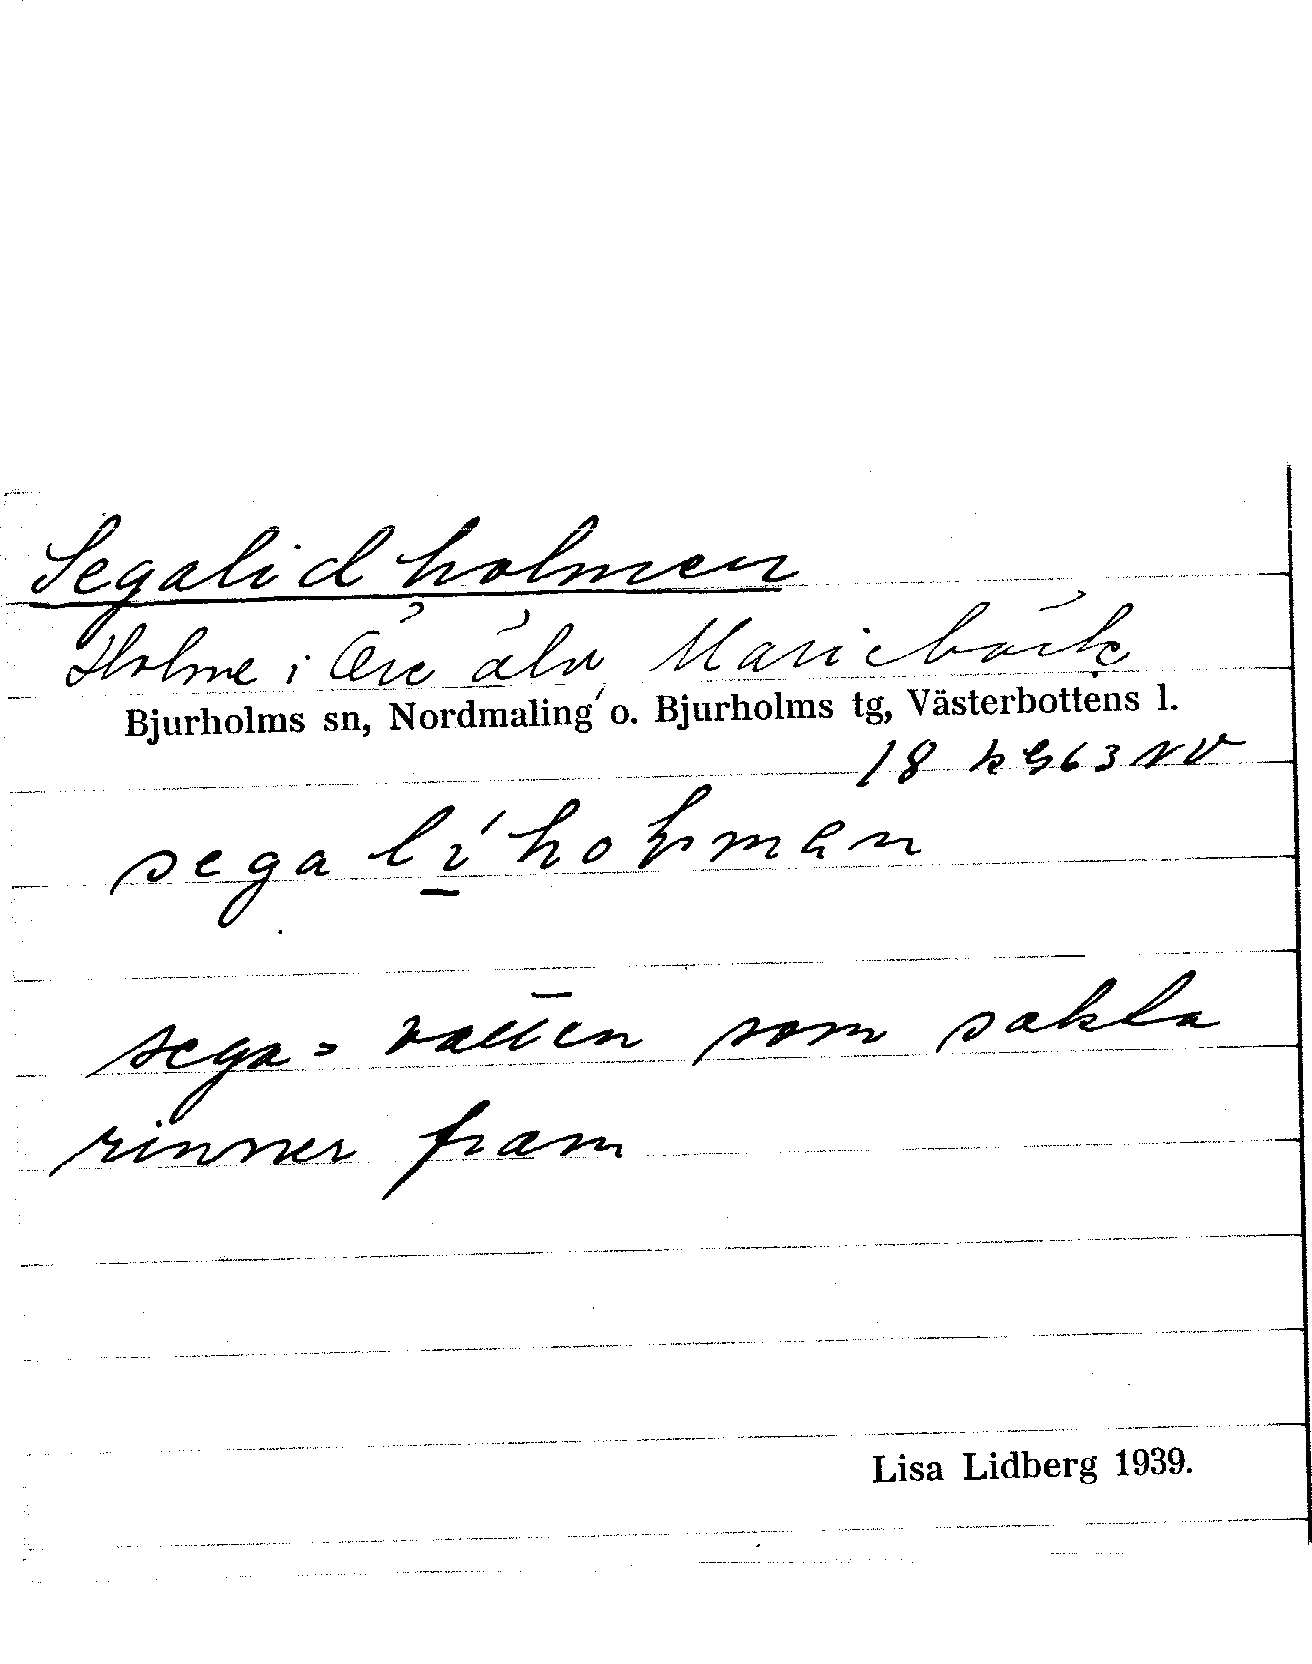 Segalidholmen
Holme i Öre älv, Mariebäck
Bjurholms sn, Nordmaling o. Bjurholms tg, Västerbottens l.
18 63 NV
sega
sega = vatten som sakta
rinner fram
Lisa Lidberg 1939.